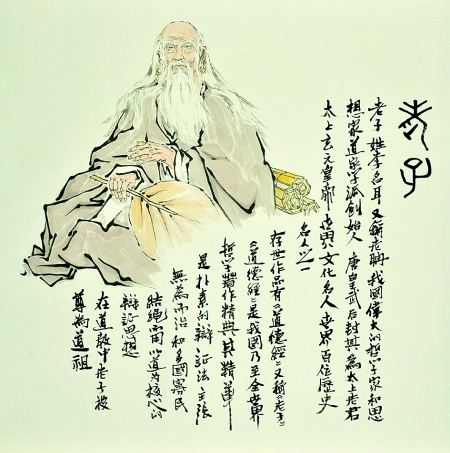 老子
老子姓李名耳又稱老聃我國偉大的哲学家和思
想家道家学派創始人 唐皇武后封其為太上老君
太上玄元皇帝 世界文化名人 世界百位歷史
名人之一
存世作品有《道德經》又稱《老子》
《道德經》是我國乃至全世界
哲学著作精典 其精華
是朴素的辯証法 主張
無為而治和國寡民
結繩而用 以道為核心的
辯証思想
在道教中老子被
尊為道祖